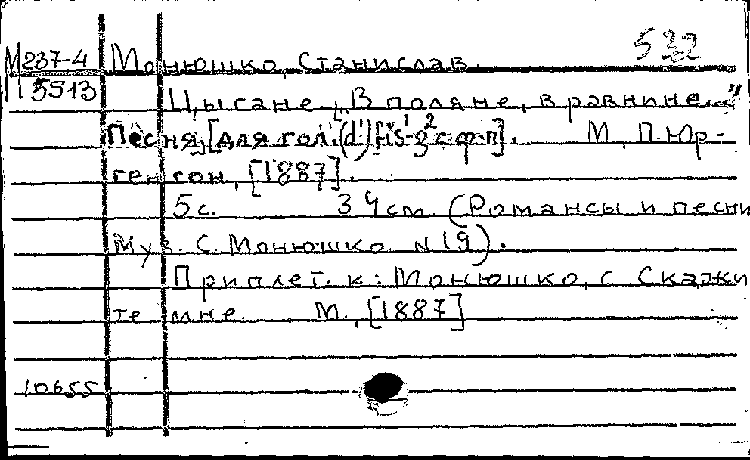 532
М237-4 Монюшко, Станислав.
П 5513
Цыгане. „В поляне, в равнине..."
Песня, [для гол. (d¹) fis¹-g² с ф-п]. М., П. Юр-
генсон, [1887].
5 с. 34 см. (Романсы и песни
Муз. С. Монюшко. N 19).
Приплет. к: Монюшко, С Скажи-
те мне М., [1887]
10655